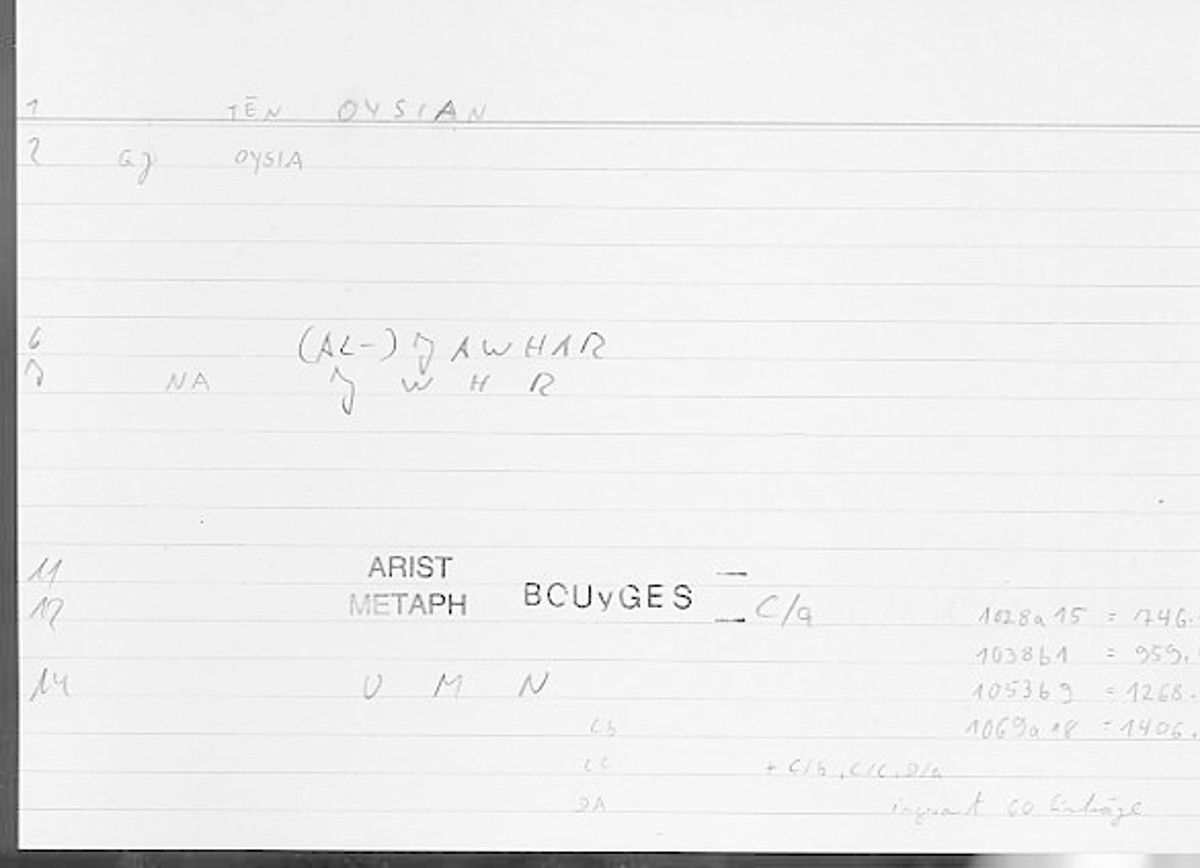 1 TĒN OYSIAN
2 GJ OYSIA
6 (AL-) JAWHAR
7 NA J W H R
11 ARIST
12 METAPH BOUyGES C/a 1028a15 = 746.
1038b1 = 959.
14 U M N 1053b9 = 1268.
Cb 1069a18 = 1406.
CC + C/b, C/C, D/a
DA insgesamt 60 Einträge